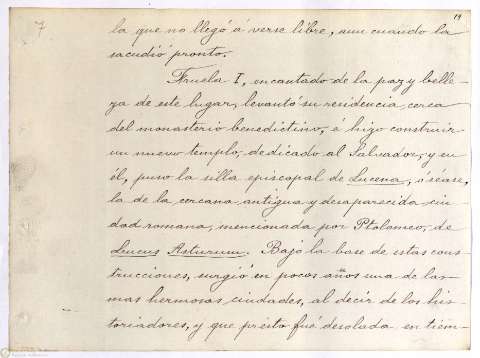 7
19
la que no llegó á verse libre, aun cuando la
sacudió pronto.
Fruela I, encantado de la paz y belle-
za de este lugar, levantó su residencia cerca
del monasterio benedictino, é hizo construir
un nuevo templo, dedicado al Salvador, y en
él, puso la silla episcopal de Lucena, ó séase,
la de la cercana antigua y desaparecida ciu-
dad romana, mencionada por Ptolomeo, de
Lucus Asturum. Bajo la base de estas cons-
trucciones, surgió en pocos años una de las
mas hermosas ciudades, al decir de los his-
toriadores, y que présto fué desolada en tiem-